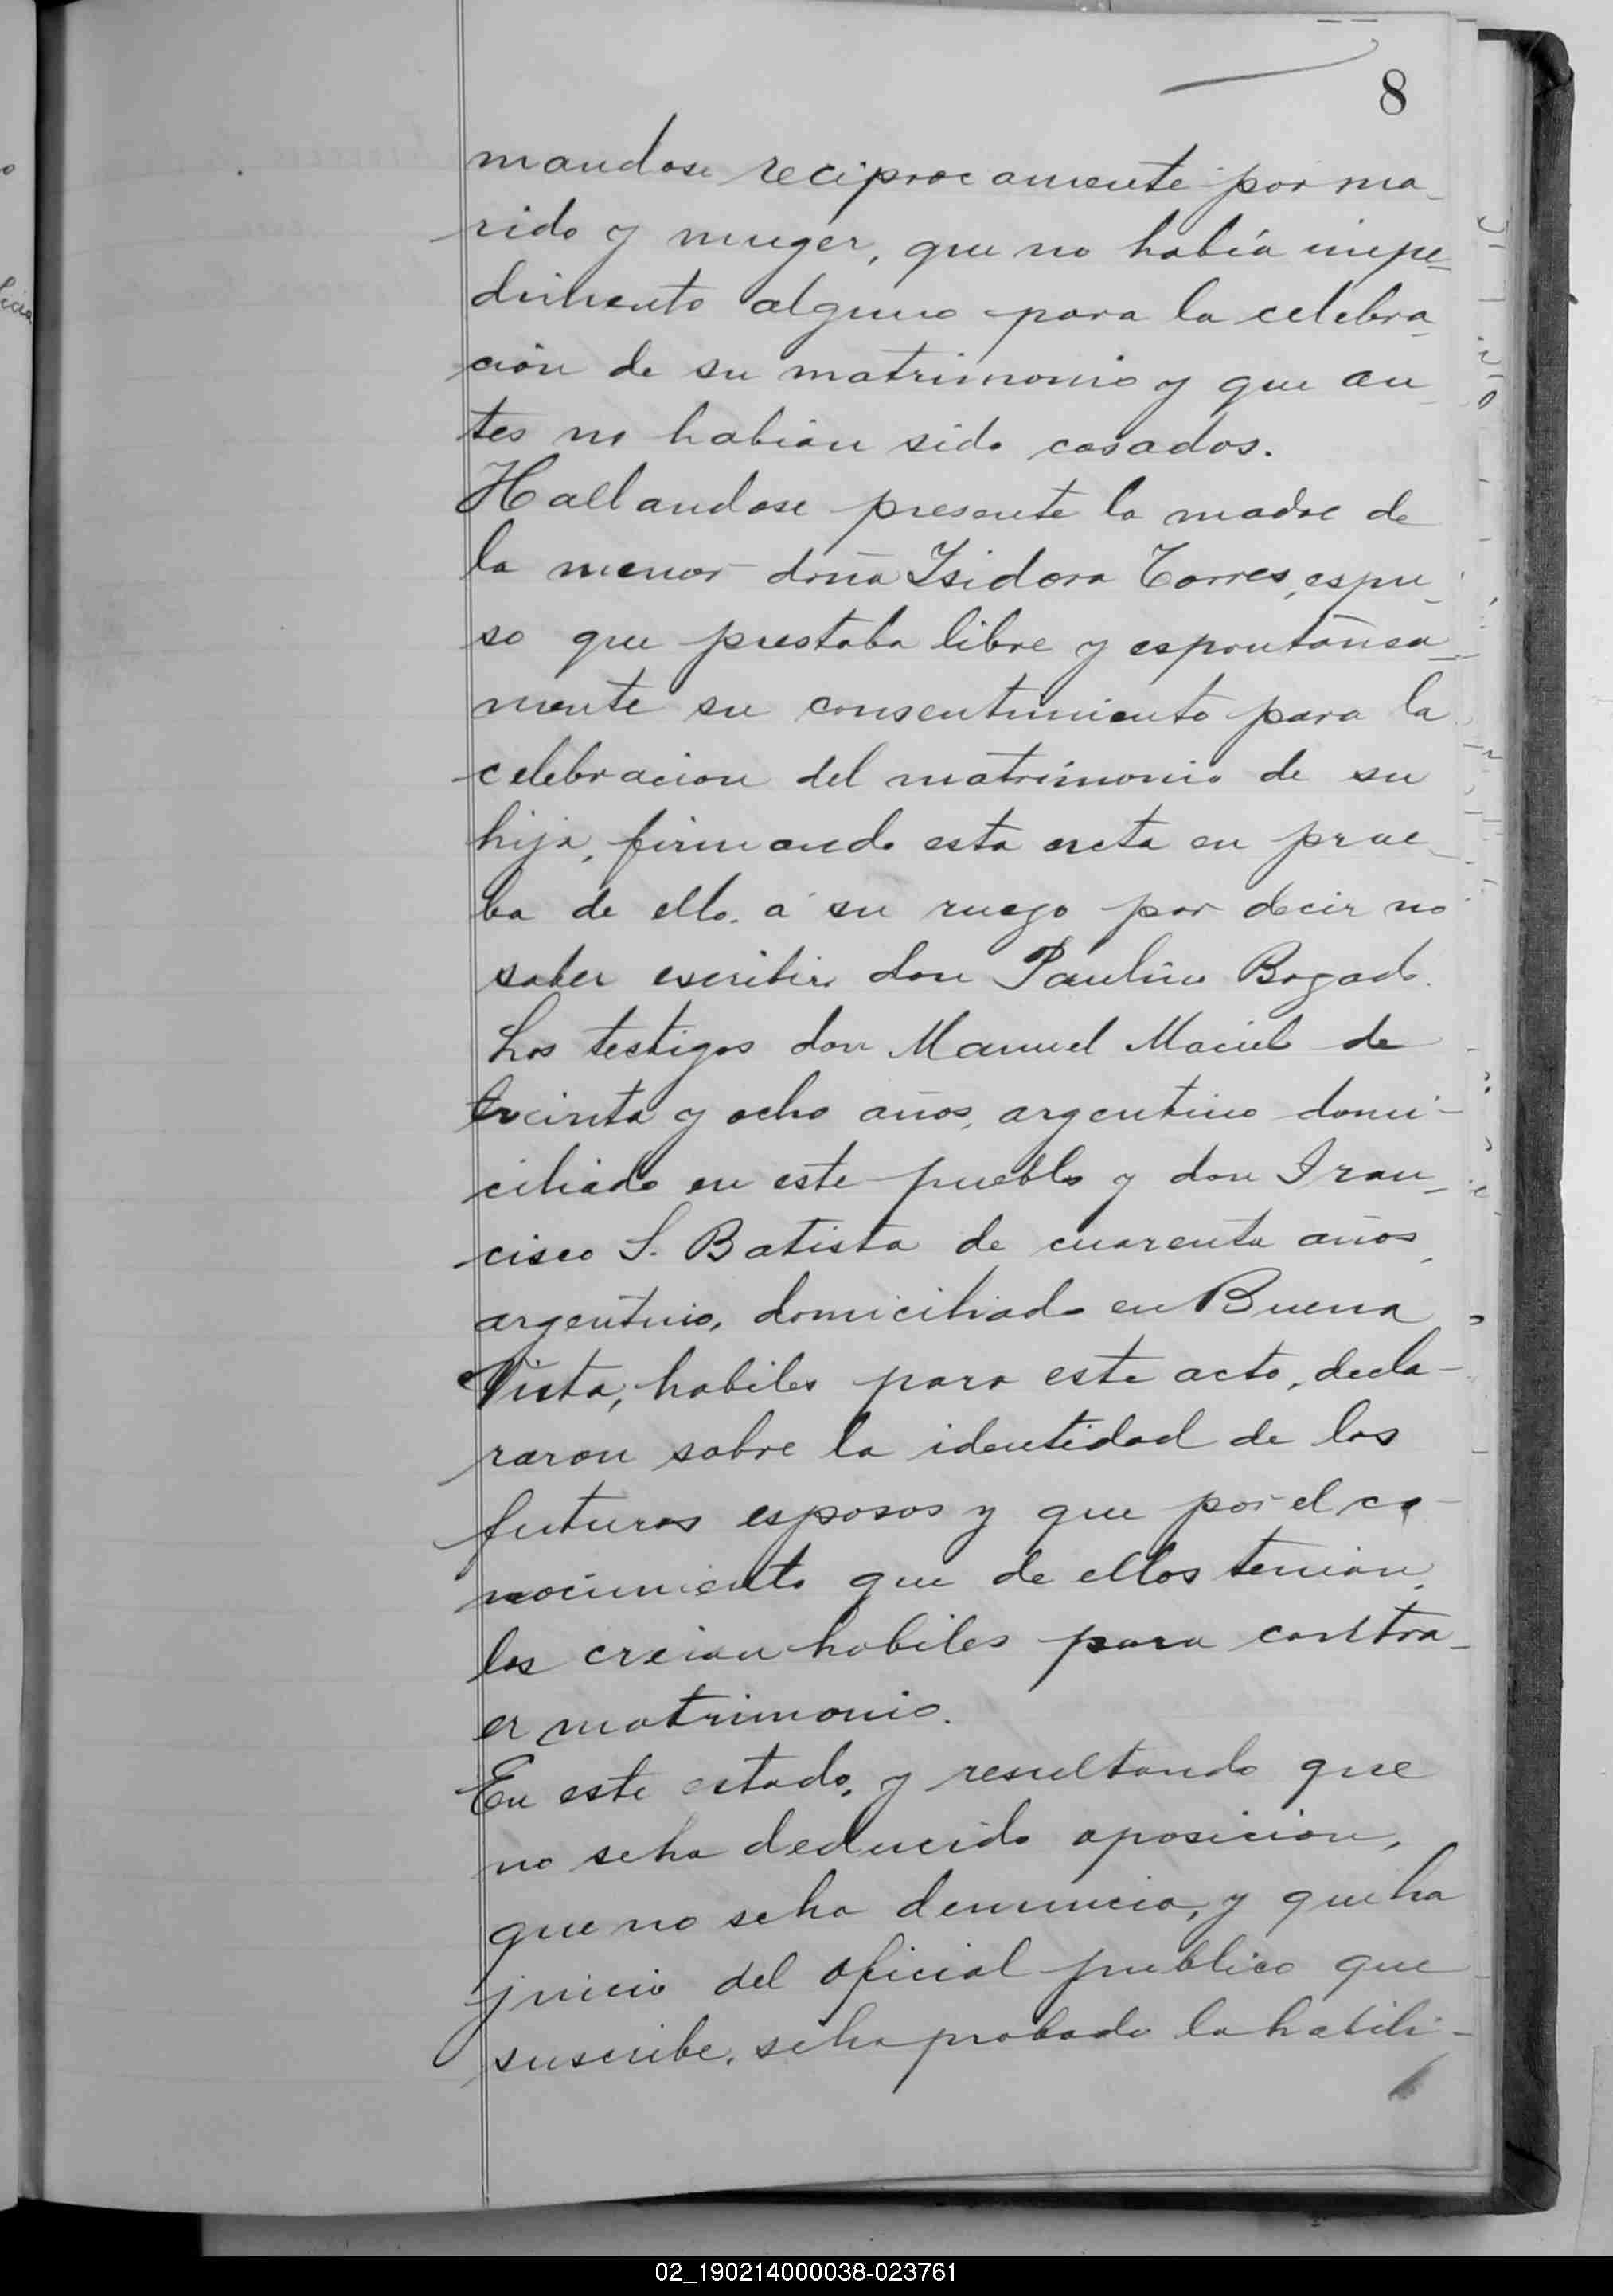 8
mandose reciprocamente por ma_
rido y muger, que no había impe_
dimento alguno para la celebra_
ción de su matrimonio y que an_
tes no habían sido casados.
Hallandose presente la madre de
la menor doña Isidora Torres, espu_
so que prestaba libre y espontánea_
mente su consentimiento para la
celebracion del matrimonio de su
hija, firmando esta acta en prue_
ba de ello. a su ruego por decir no
saber escribir don Paulino Bogado.
Los testigos don Manuel Maciel de
treinta y ocho años, argentino domi-
ciliado en este pueblo y don Fran_
cisco S. Batista de cuarenta años,
argentino, domiciliado en Buena
Vista, habiles para este acto, decla-
raron sobre la identidad de los
futuros esposos y que por el co-
nocimiento que de ellos tenian,
los creian habiles para contra_
er matrimonio.
En este estado, y resultando que
no se ha deducido oposicion,
que no se ha denuncia, y que ha
juicio del oficial publico que
suscribe, se ha probado la habili-
02_190214000038-023761